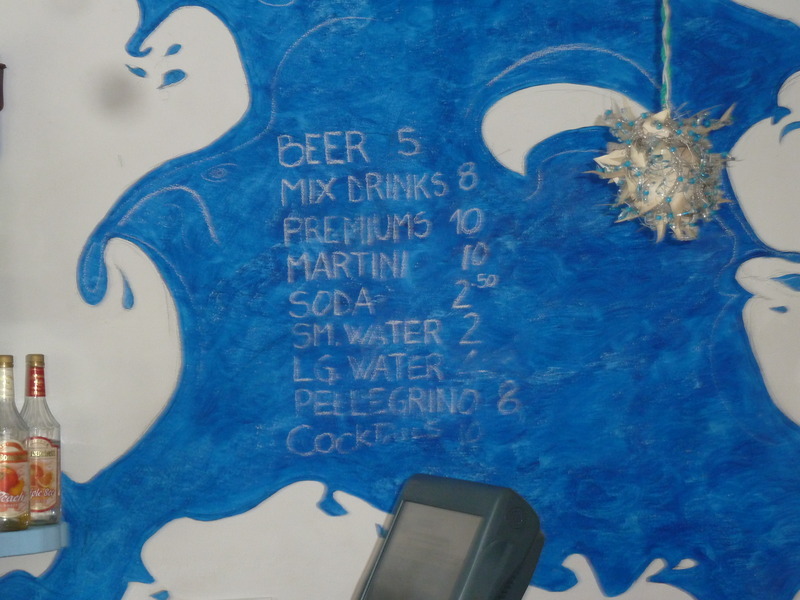 BEER 5
MIX DRINKS 8
PREMIUMS 10
MARTINI 10
SODA 2.50
SM. WATER 2
LG WATER
PELLEGRINO 8
COCKTAILS 10
Peach